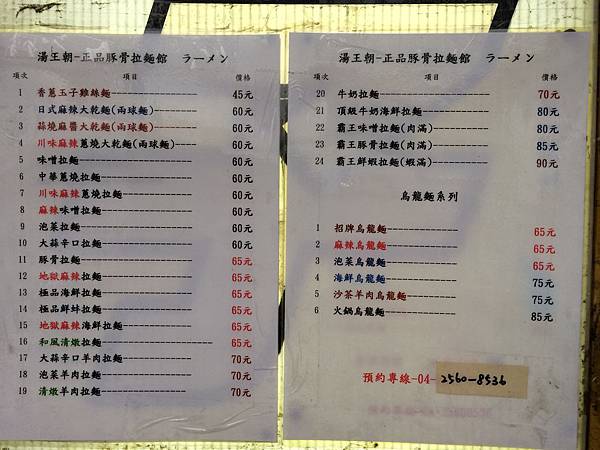 湯王朝-正品豚骨拉麵館 ラーメン
項次 項目 價格
1 香蔥玉子雞絲麵-------------------- 45元
2 日式麻辣大乾麵(兩球麵)---------- 60元
3 蒜燒麻醬大乾麵(兩球麵)---------- 60元
4 川味麻辣蔥燒大乾麵(兩球麵)---- 60元
5 味噌拉麵-------------------------- 60元
6 中華蔥燒拉麵-------------------- 60元
7 川味麻辣蔥燒拉麵---------------- 60元
8 麻辣味噌拉麵-------------------- 60元
9 泡菜拉麵-------------------------- 60元
10 大蒜辛口拉麵-------------------- 60元
11 豚骨拉麵-------------------------- 65元
12 地獄麻辣拉麵-------------------- 65元
13 極品海鮮拉麵-------------------- 65元
14 極品鮮蚌拉麵-------------------- 65元
15 地獄麻辣海鮮拉麵---------------- 65元
16 和風清燉拉麵-------------------- 65元
17 大蒜辛口羊肉拉麵-------------- 70元
18 泡菜羊肉拉麵-------------------- 70元
19 清燉羊肉拉麵-------------------- 70元
湯王朝-正品豚骨拉麵館 ラーメン
項次 項目 價格
20 牛奶拉麵-------------------------- 70元
21 頂級牛奶海鮮拉麵---------------- 80元
22 霸王味噌拉麵(肉滿)------------ 80元
23 霸王豚骨拉麵(肉滿)------------ 85元
24 霸王鮮蝦拉麵(蝦滿)------------ 90元
烏龍麵系列
1 招牌烏龍麵------------------ 65元
2 麻辣烏龍麵------------------ 65元
3 泡菜烏龍麵------------------ 65元
4 海鮮烏龍麵------------------ 75元
5 沙茶羊肉烏龍麵------------ 75元
6 火鍋烏龍麵------------------ 85元
預約專線-04-2560-8536